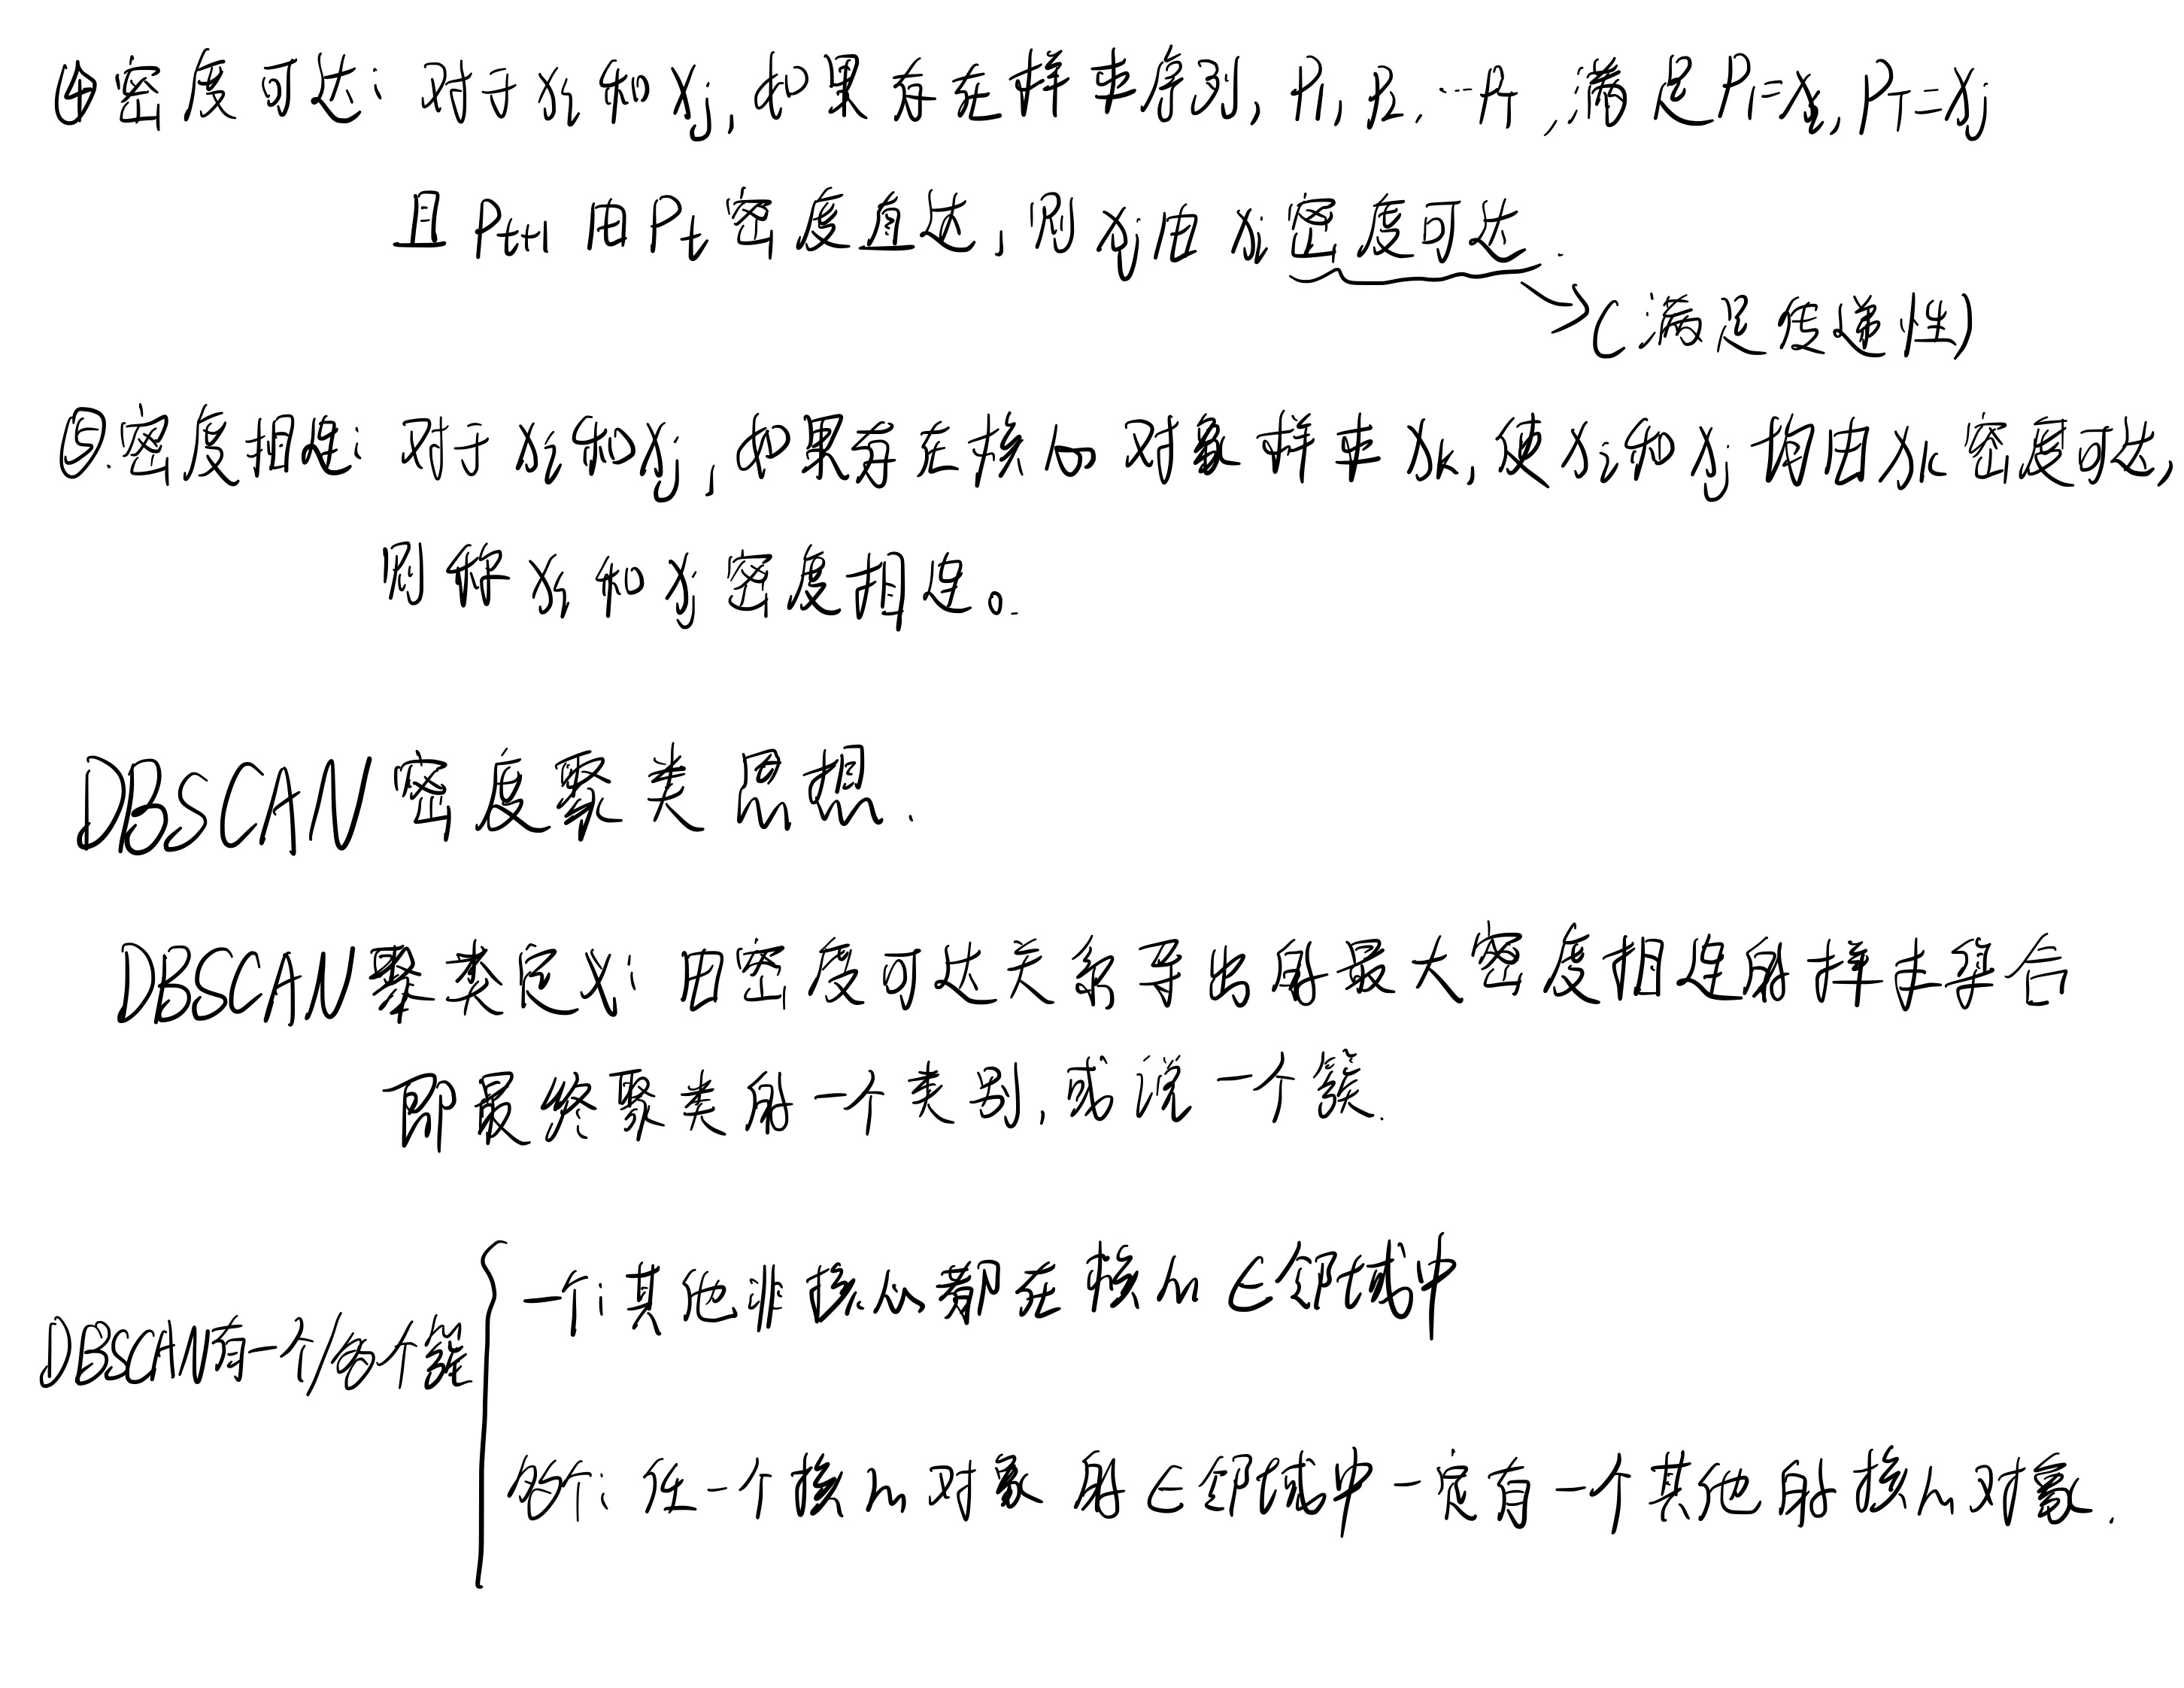 ④密度可达：对于xi和xj，如果存在样本序列，P1，P2，…PT，满足P1=xi，PT=xj
且Pt+1由Pt密度直达，则xj由xi密度可达.
(满足传递性)
⑤.密度相连：对于xi和xj，如果存在核心对象样本xk，使xi和xj均由xk密度可达，
则称xi和xj密度相连。
DBSCAN密度聚类思想.
DBSCAN聚类定义：由密度可达关系导出的最大密度相连的样本集合
即最终聚类的一个类别，或说一个簇.
DBSCAN有一个/多个簇
一个：其他非核心都在核心ϵ邻域中
多个：任一个核心对象的ϵ邻域中一定有一个其他的核心对象.